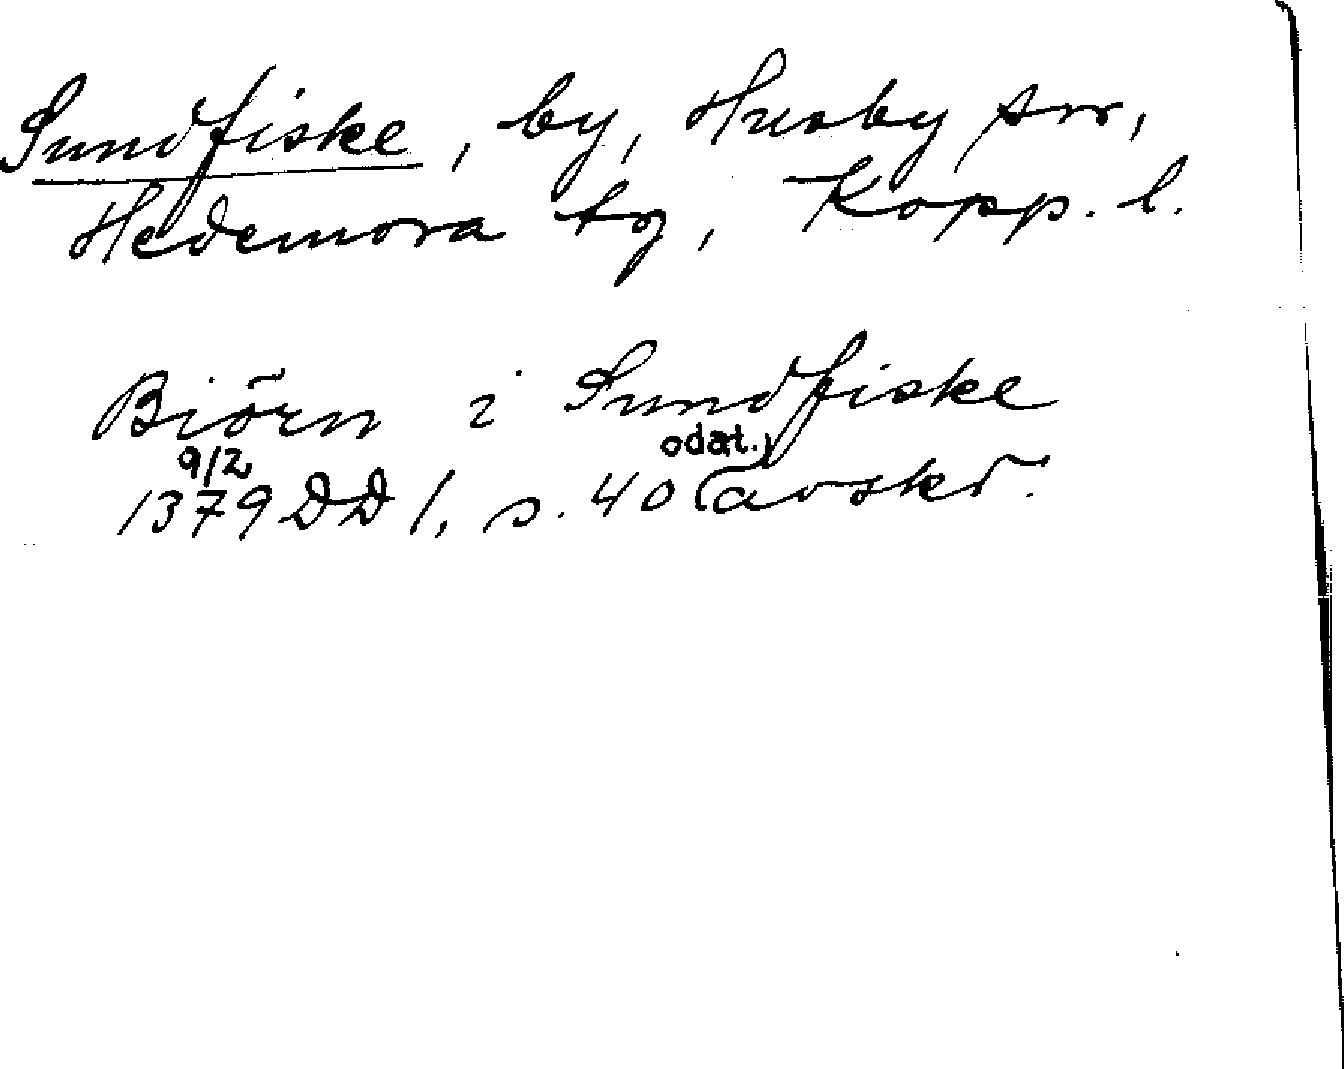 Sundfiske, by, Husby sn,
Hedemora tg, Kopp. l.
Biörn i Sundfiske
9/2 odat.
1379 DD 1, s. 40 (avskr.